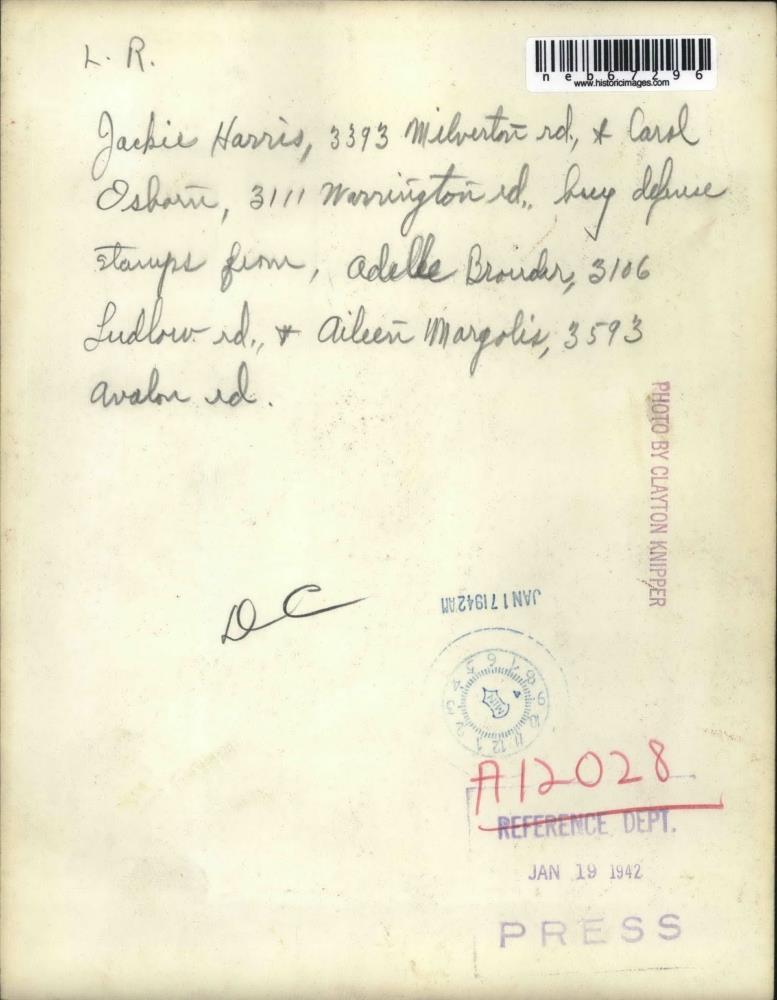 L. R.
neb67296
www.historicimages.com
Jackie Harris, 3393 Milverton rd., & Carol
Osborn, 3111 Warrington rd., buy defense
stamps from, Adelle Brouder, 3106
Ludlow rd., & Aileen Margolis, 3593
Avalon rd.
PHOTO BY CLAYTON KNIPPER
DC
JAN 17 1942 AM
1 2 3 4 5 6 7 8 9 10 11 12
MIN
A12028
REFERENCE DEPT.
JAN 19 1942
PRESS